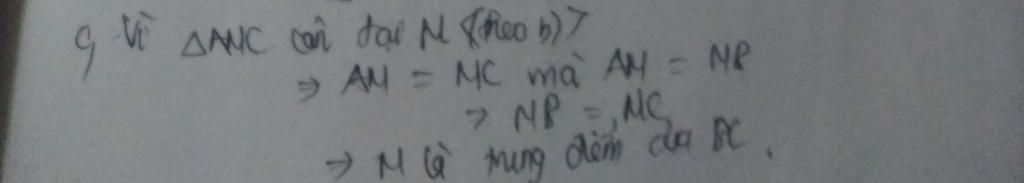 c, Vì △AMC cân tại M (theo b)
⇒ AM = MC mà AM = MB
⇒ MB = MC
⇒ M là trung điểm của BC.